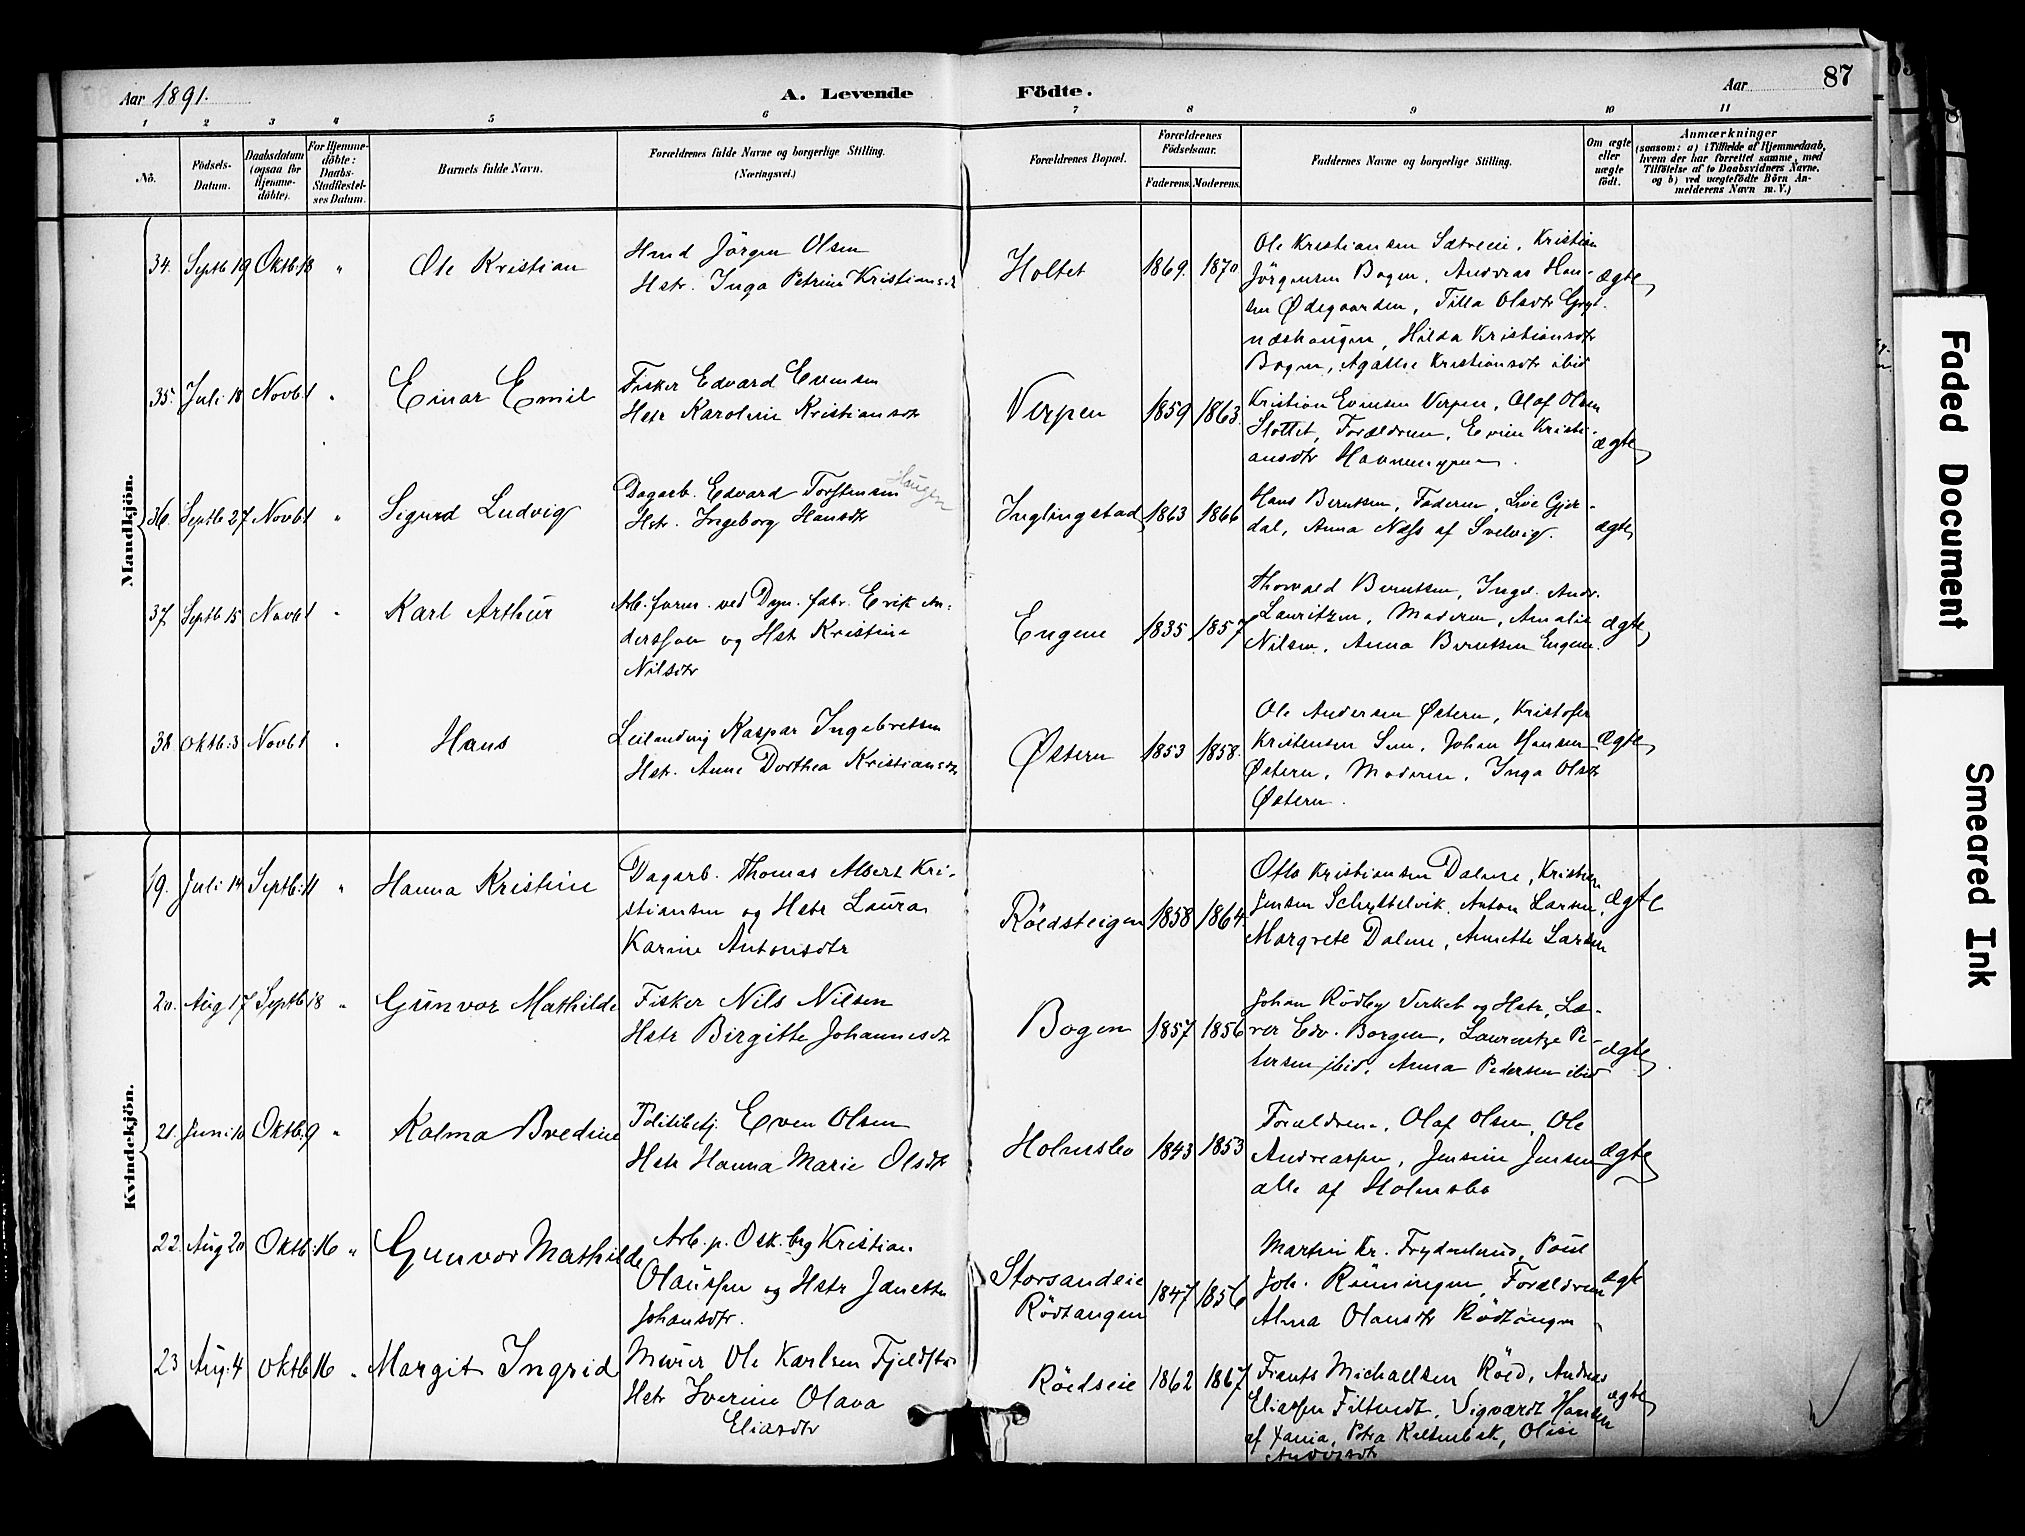 Aar 1891. A. Levende Födte. Aar 87
1 2 3 4 5 6 7 8 9 10 11
No.
Födsels-Datum.
Daabsdatum (ogsaa for Hjemme-döbte).
For Hjemme-döbte: Daabs-Stadfestel-ses Datum.
Barnets fulde Navn.
Forældrenes fulde Navne og borgerlige Stilling.
(Næringsvei.)
Forældrenes Bopæl.
Forældrenes Födselsaar.
Faderens. Moderens.
Faddernes Navne og borgerlige Stilling.
Om ægte eller uægte födt.
Anmærkninger
(saasom: a) i Tilfælde af Hjemmedaab,
hvem der har forrettet samme, med
Tilföielse af to Daabsvidners Navne,
og b) ved uægtefödte Börn An-
melderens Navn m. V.)
Mandkjön.
34. Septb 19 Oktb. 18 " Ole Kristian
Jörgen Olsen
Hstr. Inga Petrine Kristiansdtr
Holtet 1869. 1870
Ole Kristiansen Sætreeie, Kristian
Jörgensen Bogen, Andreas Han-
sen Ødegaarden, Tilla Olsdtr
Hilda Kristiansdtr
Bogen, Agathe Kristiansdtr ibid
ægte
35. Juli 18 Novb 1 " Einar Emil
Fisker Edvard Evensen
Hstr Karoline Kristiansdtr
Verpen 1859 1863.
Kristian Evensen Verpen, Olaf Olsen
Slottet, Forældrene, Kristi-
ansdtr
ægte
36. Septb 27 Novb 1 " Sigurd Ludvig
Dagarb. Edvard Torstensen Haugen
Hstr. Ingeborg Hansdtr
Inglingstad 1863 1866
Hans Berntsen, Faderen, Live Gjer-
dal, Anna Næss af Svelvig.
ægte
37. Septb 15 Novb 1 " Karl Arthur
Arb. form. ved Dyn. fabr. Erik An-
dersson og Hstr Kristine
Nilsdtr
Engene 1835 1857
Thorvald Berntsen, Andr.
Lauritzen, Moderen, Amalie
Nilsen, Anna Berntsen Engene.
ægte
38. Oktb. 3 Novb 1 " Hans
Leilending Kaspar Ingebretsen
Hstr. Anne Dorthea Kristiansdtr
Østern 1853 1858.
Ole Andersen Østern, Kristofer
Kristensen Johan Hansen
Østern, Moderen, Inga Olsdtr
Østern.
ægte
Kvindekjön.
19. Juli 14 Septb. 11 " Hanna Kristine
Dagarb. Thomas Albert Kri-
stiansen og Hstr Laura
Karine Antonisdtr
Röedsteigen 1858 1864.
Otto Kristiansen Dalene, Kristian
Jensen Schyttelvik, Anton Larsen,
Margrete Dalene, Annette Larsen
ægte
20. Aug 17 Septb 18 " Gunvor Mathilde
Fisker Nils Nilsen
Hstr Birgitte Johannesdtr
Bogen 1857 1856
Johan Rödby Verket og Hstr, Læ-
rer Edv. Borgen, Laurentze Pe-
tersen ibid, Anna Pedersen ibid
ægte
21. Juni 10 Oktb. 9 " Kalma Bredine
Politibetj. Even Olsen
Hstr Hanna Marie Olsdtr
Holmsbo 1843 1853
Forældrene, Olaf Olsen, Ole
Andreassen, Jensine Jensen
alle af Holmsbo
ægte
22. Aug 20 Oktb. 16 " Gunvor Mathilde
Arb. p. Osk.brg Kristian
Olaussen og Hstr Janette
Johansdtr.
Storsandeie
Rödtangen 1847 1856
Martin Kr. Frydenlund, Poul
Joh. Rönningen, Forældrene
Alma Olausdtr Rödtangen
ægt
23 Aug. 4 Oktb 16 " Margit Ingrid
Murer Ole Karlsen
Hstr Iverine Olava
Eliasdtr
Röedseie 1862 1867
Frants Michaelsen Röed, Andreas
Eliassen Filtvedt, Sigvardt Hansen
af Petra Oline
Andersdtr
ægte
Faded Document
Smeared Ink